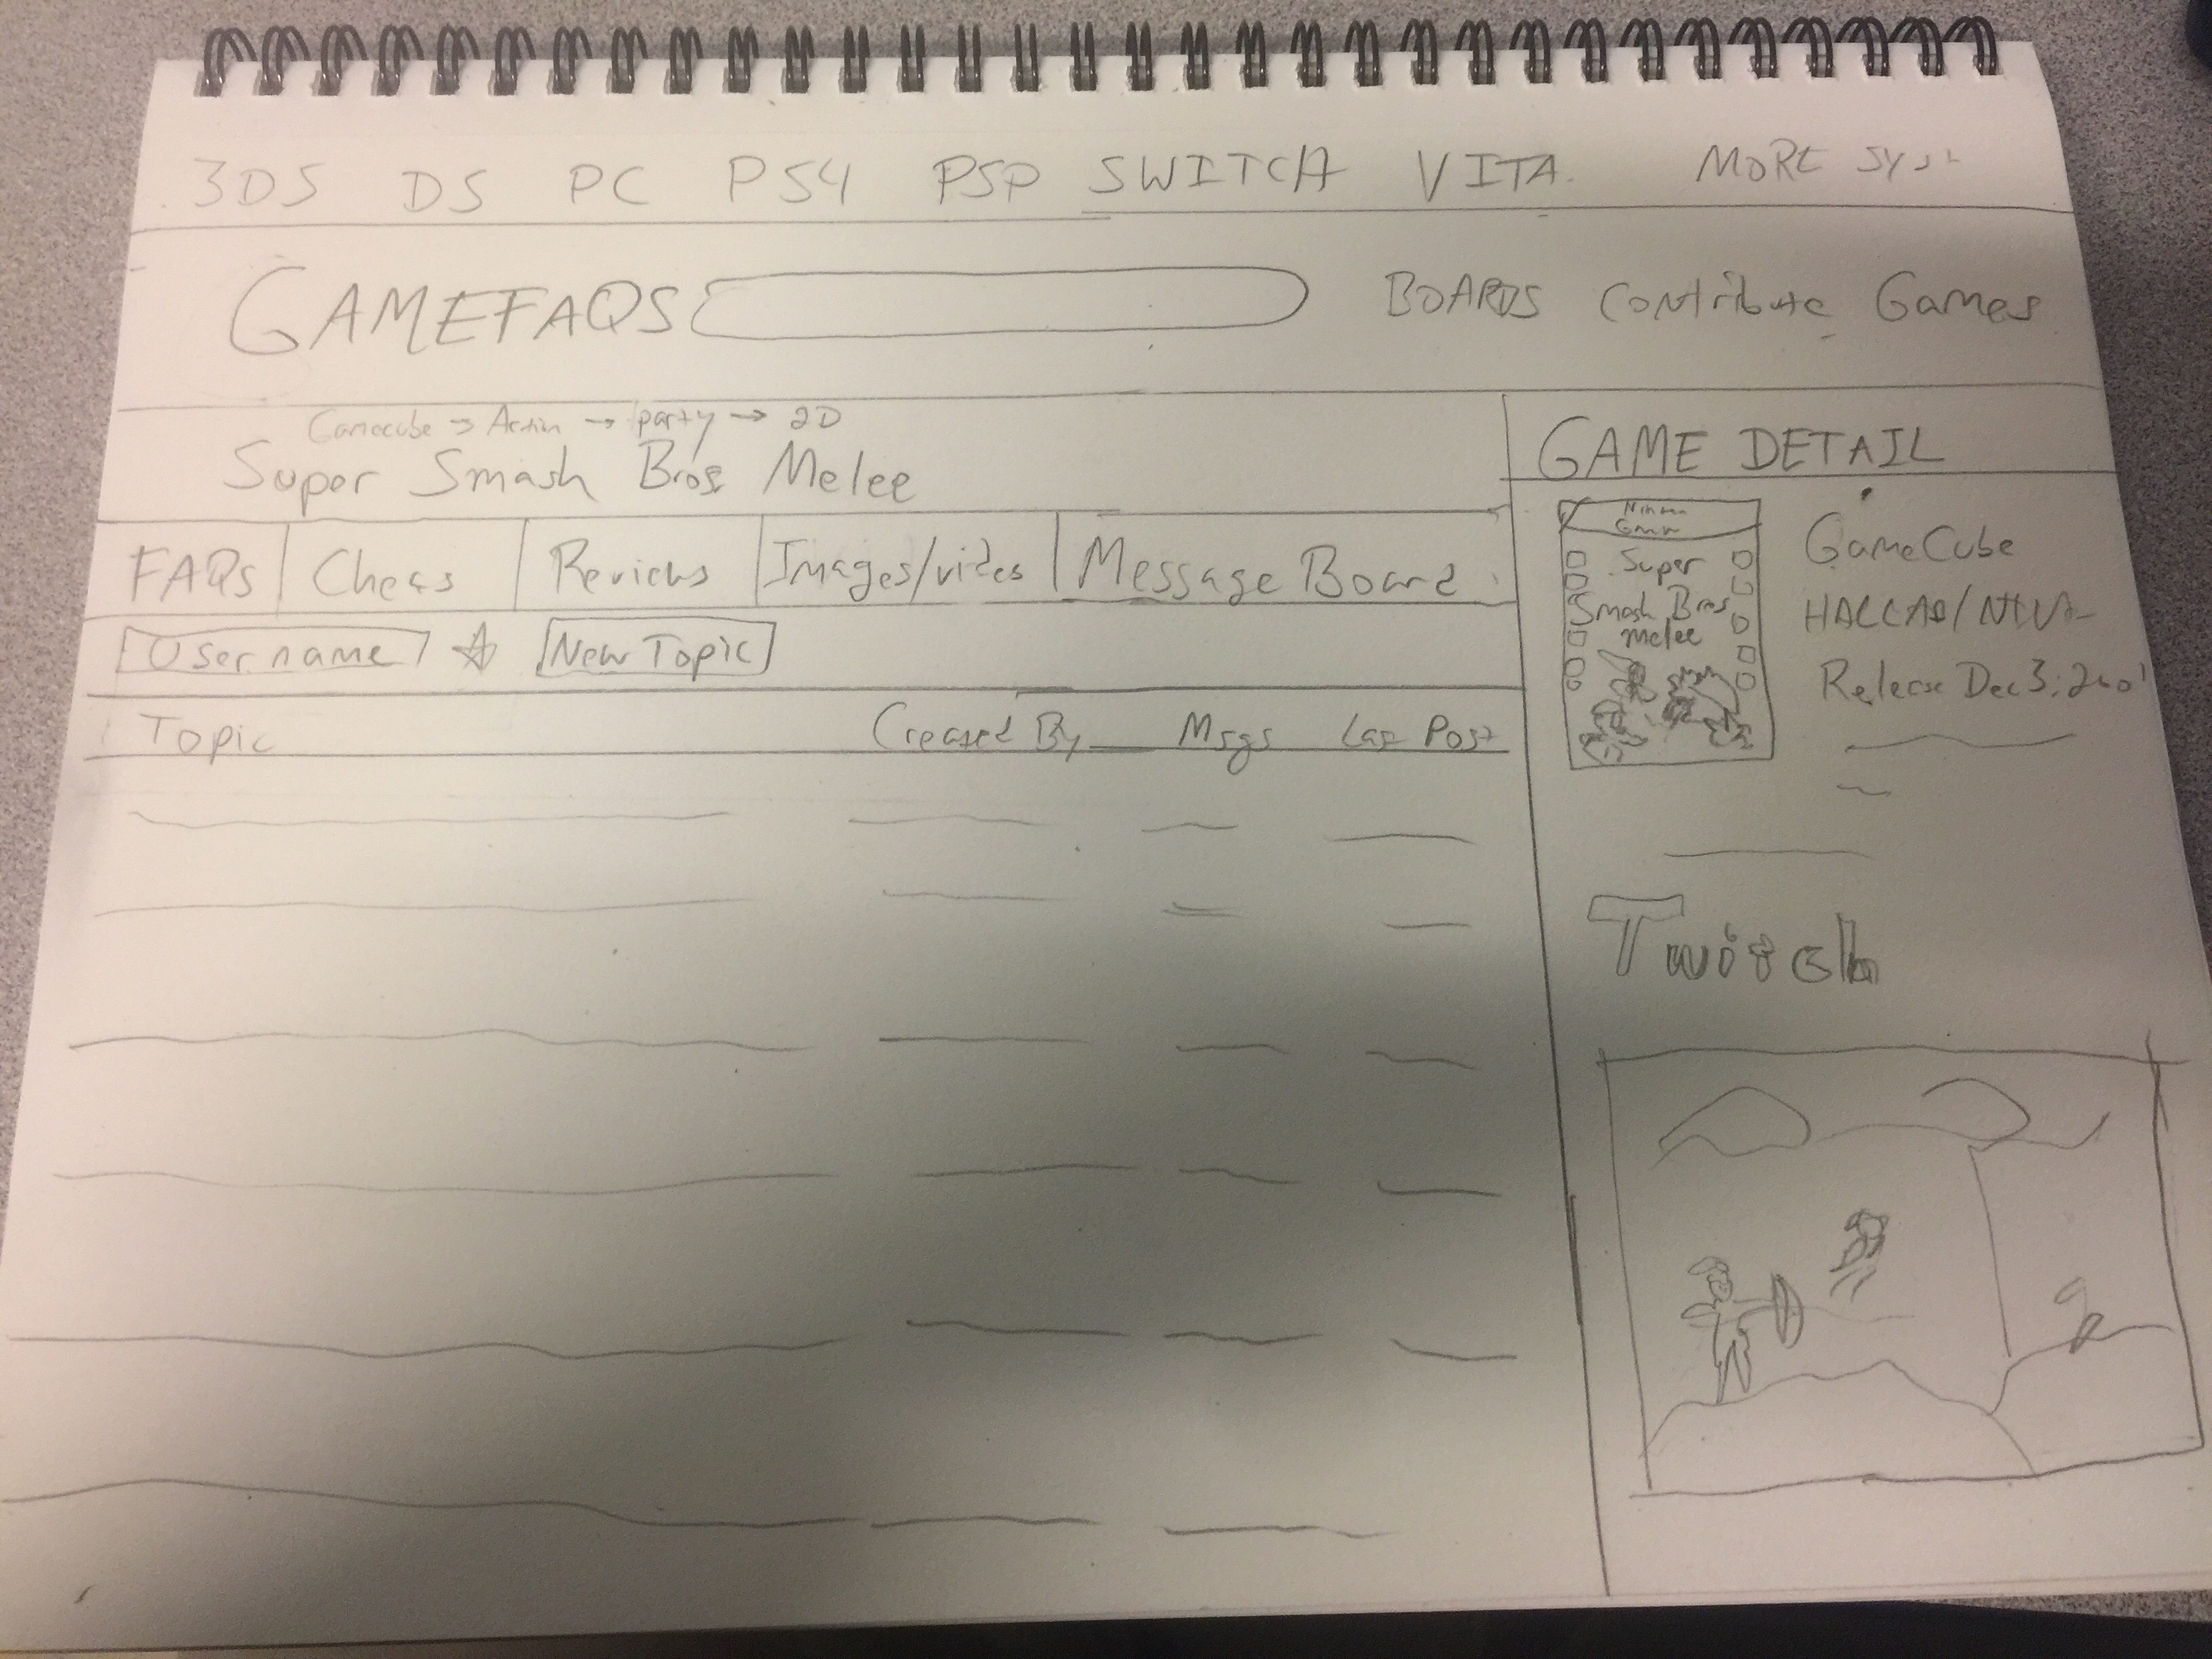 3DS DS PC PS4 PSP SWITCH VITA MORE SYS
GAMEFAQS BOARDS Contribute Games
Gamecube → Action → party → 2D
Super Smash Bros Melee
FAQs Cheas Reviews Images/vides Message Board
Username ☆ New Topic
Topic Created By Msgs Las Post
GAME DETAIL
Super
Smash Bros
Melee
GameCube
Release Dec 3, 2001
Twitch